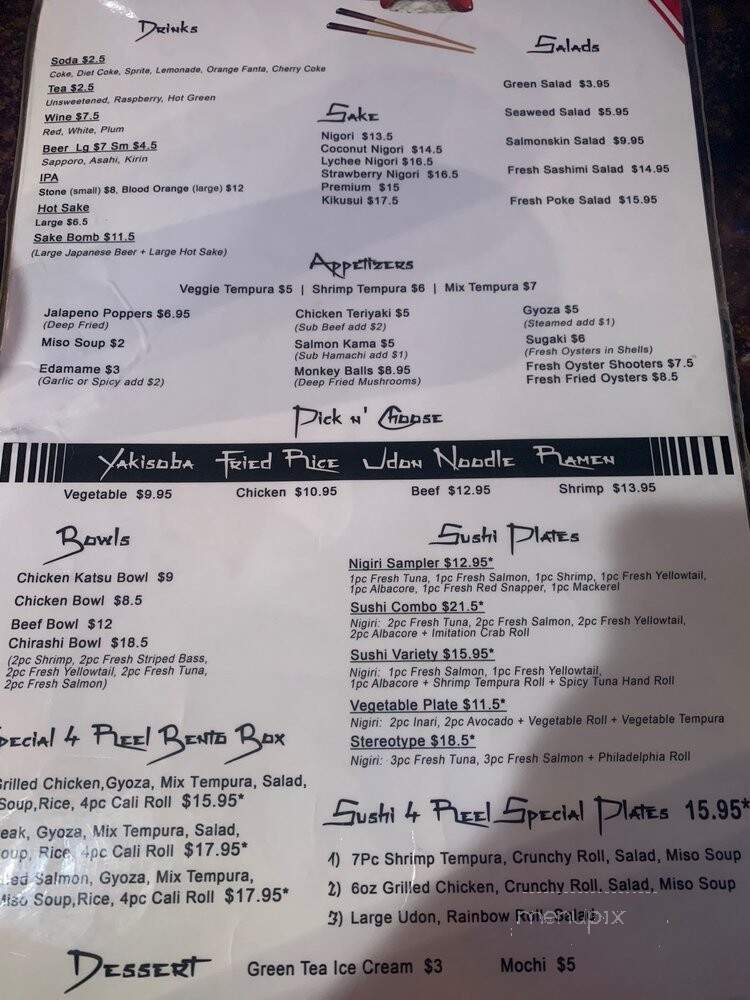 Drinks
Soda $2.5
Coke, Diet Coke, Sprite, Lemonade, Orange Fanta, Cherry Coke
Tea $2.5
Unsweetened, Raspberry, Hot Green
Wine $7.5
Red, White, Plum
Beer Lg $7 Sm $4.5
Sapporo, Asahi, Kirin
IPA
Stone (small) $8, Blood Orange (large) $12
Hot Sake
Large $6.5
Sake Bomb $11.5
(Large Japanese Beer + Large Hot Sake)
Sake
Nigori $13.5
Coconut Nigori $14.5
Lychee Nigori $16.5
Strawberry Nigori $16.5
Premium $15
Kikusui $17.5
Salads
Green Salad $3.95
Seaweed Salad $5.95
Salmonskin Salad $9.95
Fresh Sashimi Salad $14.95
Fresh Poke Salad $15.95
Appetizers
Veggie Tempura $5 | Shrimp Tempura $6 | Mix Tempura $7
Jalapeno Poppers $6.95
(Deep Fried)
Miso Soup $2
Edamame $3
(Garlic or Spicy add $2)
Chicken Teriyaki $5
(Sub Beef add $2)
Salmon Kama $5
(Sub Hamachi add $1)
Monkey Balls $8.95
(Deep Fried Mushrooms)
Gyoza $5
(Steamed add $1)
Sugaki $6
(Fresh Oysters in Shells)
Fresh Oyster Shooters $7.5
Fresh Fried Oysters $8.5
Pick n' Choose
Yakisoba Fried Rice Udon Noodle Ramen
Vegetable $9.95 Chicken $10.95 Beef $12.95 Shrimp $13.95
Bowls
Chicken Katsu Bowl $9
Chicken Bowl $8.5
Beef Bowl $12
Chirashi Bowl $18.5
(2pc Shrimp, 2pc Fresh Striped Bass,
2pc Fresh Yellowtail, 2pc Fresh Tuna,
2pc Fresh Salmon)
Sushi Plates
Nigiri Sampler $12.95*
1pc Fresh Tuna, 1pc Fresh Salmon, 1pc Shrimp, 1pc Fresh Yellowtail,
1pc Albacore, 1pc Fresh Red Snapper, 1pc Mackerel
Sushi Combo $21.5*
Nigiri: 2pc Fresh Tuna, 2pc Fresh Salmon, 2pc Fresh Yellowtail,
2pc Albacore + Imitation Crab Roll
Sushi Variety $15.95*
Nigiri: 1pc Fresh Salmon, 1pc Fresh Yellowtail,
1pc Albacore + Shrimp Tempura Roll + Spicy Tuna Hand Roll
Vegetable Plate $11.5*
Nigiri: 2pc Inari, 2pc Avocado + Vegetable Roll + Vegetable Tempura
Stereotype $18.5*
Nigiri: 3pc Fresh Tuna, 3pc Fresh Salmon + Philadelphia Roll
pecial 4 Reel Bento Box
Grilled Chicken,Gyoza, Mix Tempura, Salad,
Soup,Rice, 4pc Cali Roll $15.95*
eak, Gyoza, Mix Tempura, Salad,
oup, Rice, 4pc Cali Roll $17.95*
Salmon, Gyoza, Mix Tempura,
Miso Soup,Rice, 4pc Cali Roll $17.95*
Sushi 4 Reel Special Plates 15.95*
1) 7Pc Shrimp Tempura, Crunchy Roll, Salad, Miso Soup
2) 6oz Grilled Chicken, Crunchy Roll, Salad, Miso Soup
3) Large Udon, Rainbow Roll, Salad
menupix
Dessert Green Tea Ice Cream $3 Mochi $5